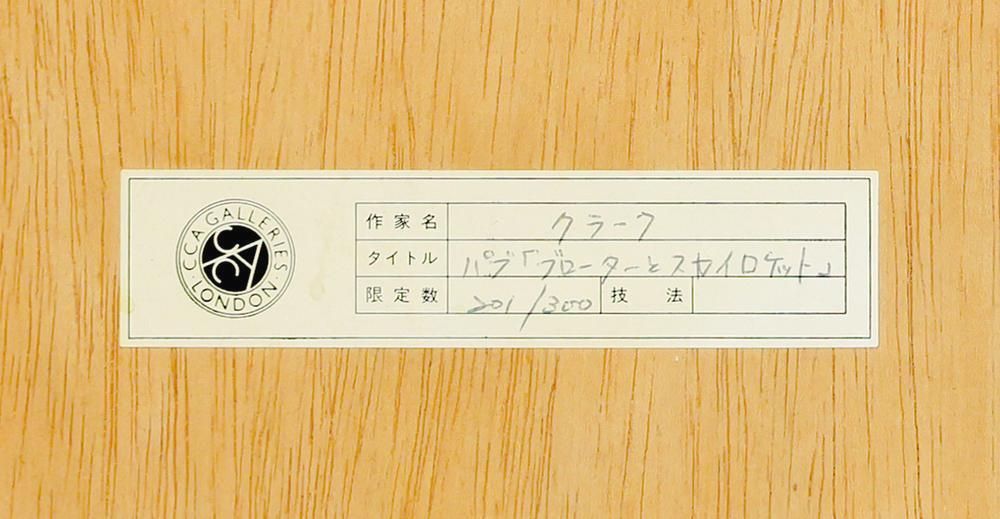 CCA GALLERIES · LONDON ·
CCA
作家名 クラーク
タイトル パブ「ブローターとスカイロケット」
限定数 201/300 技法